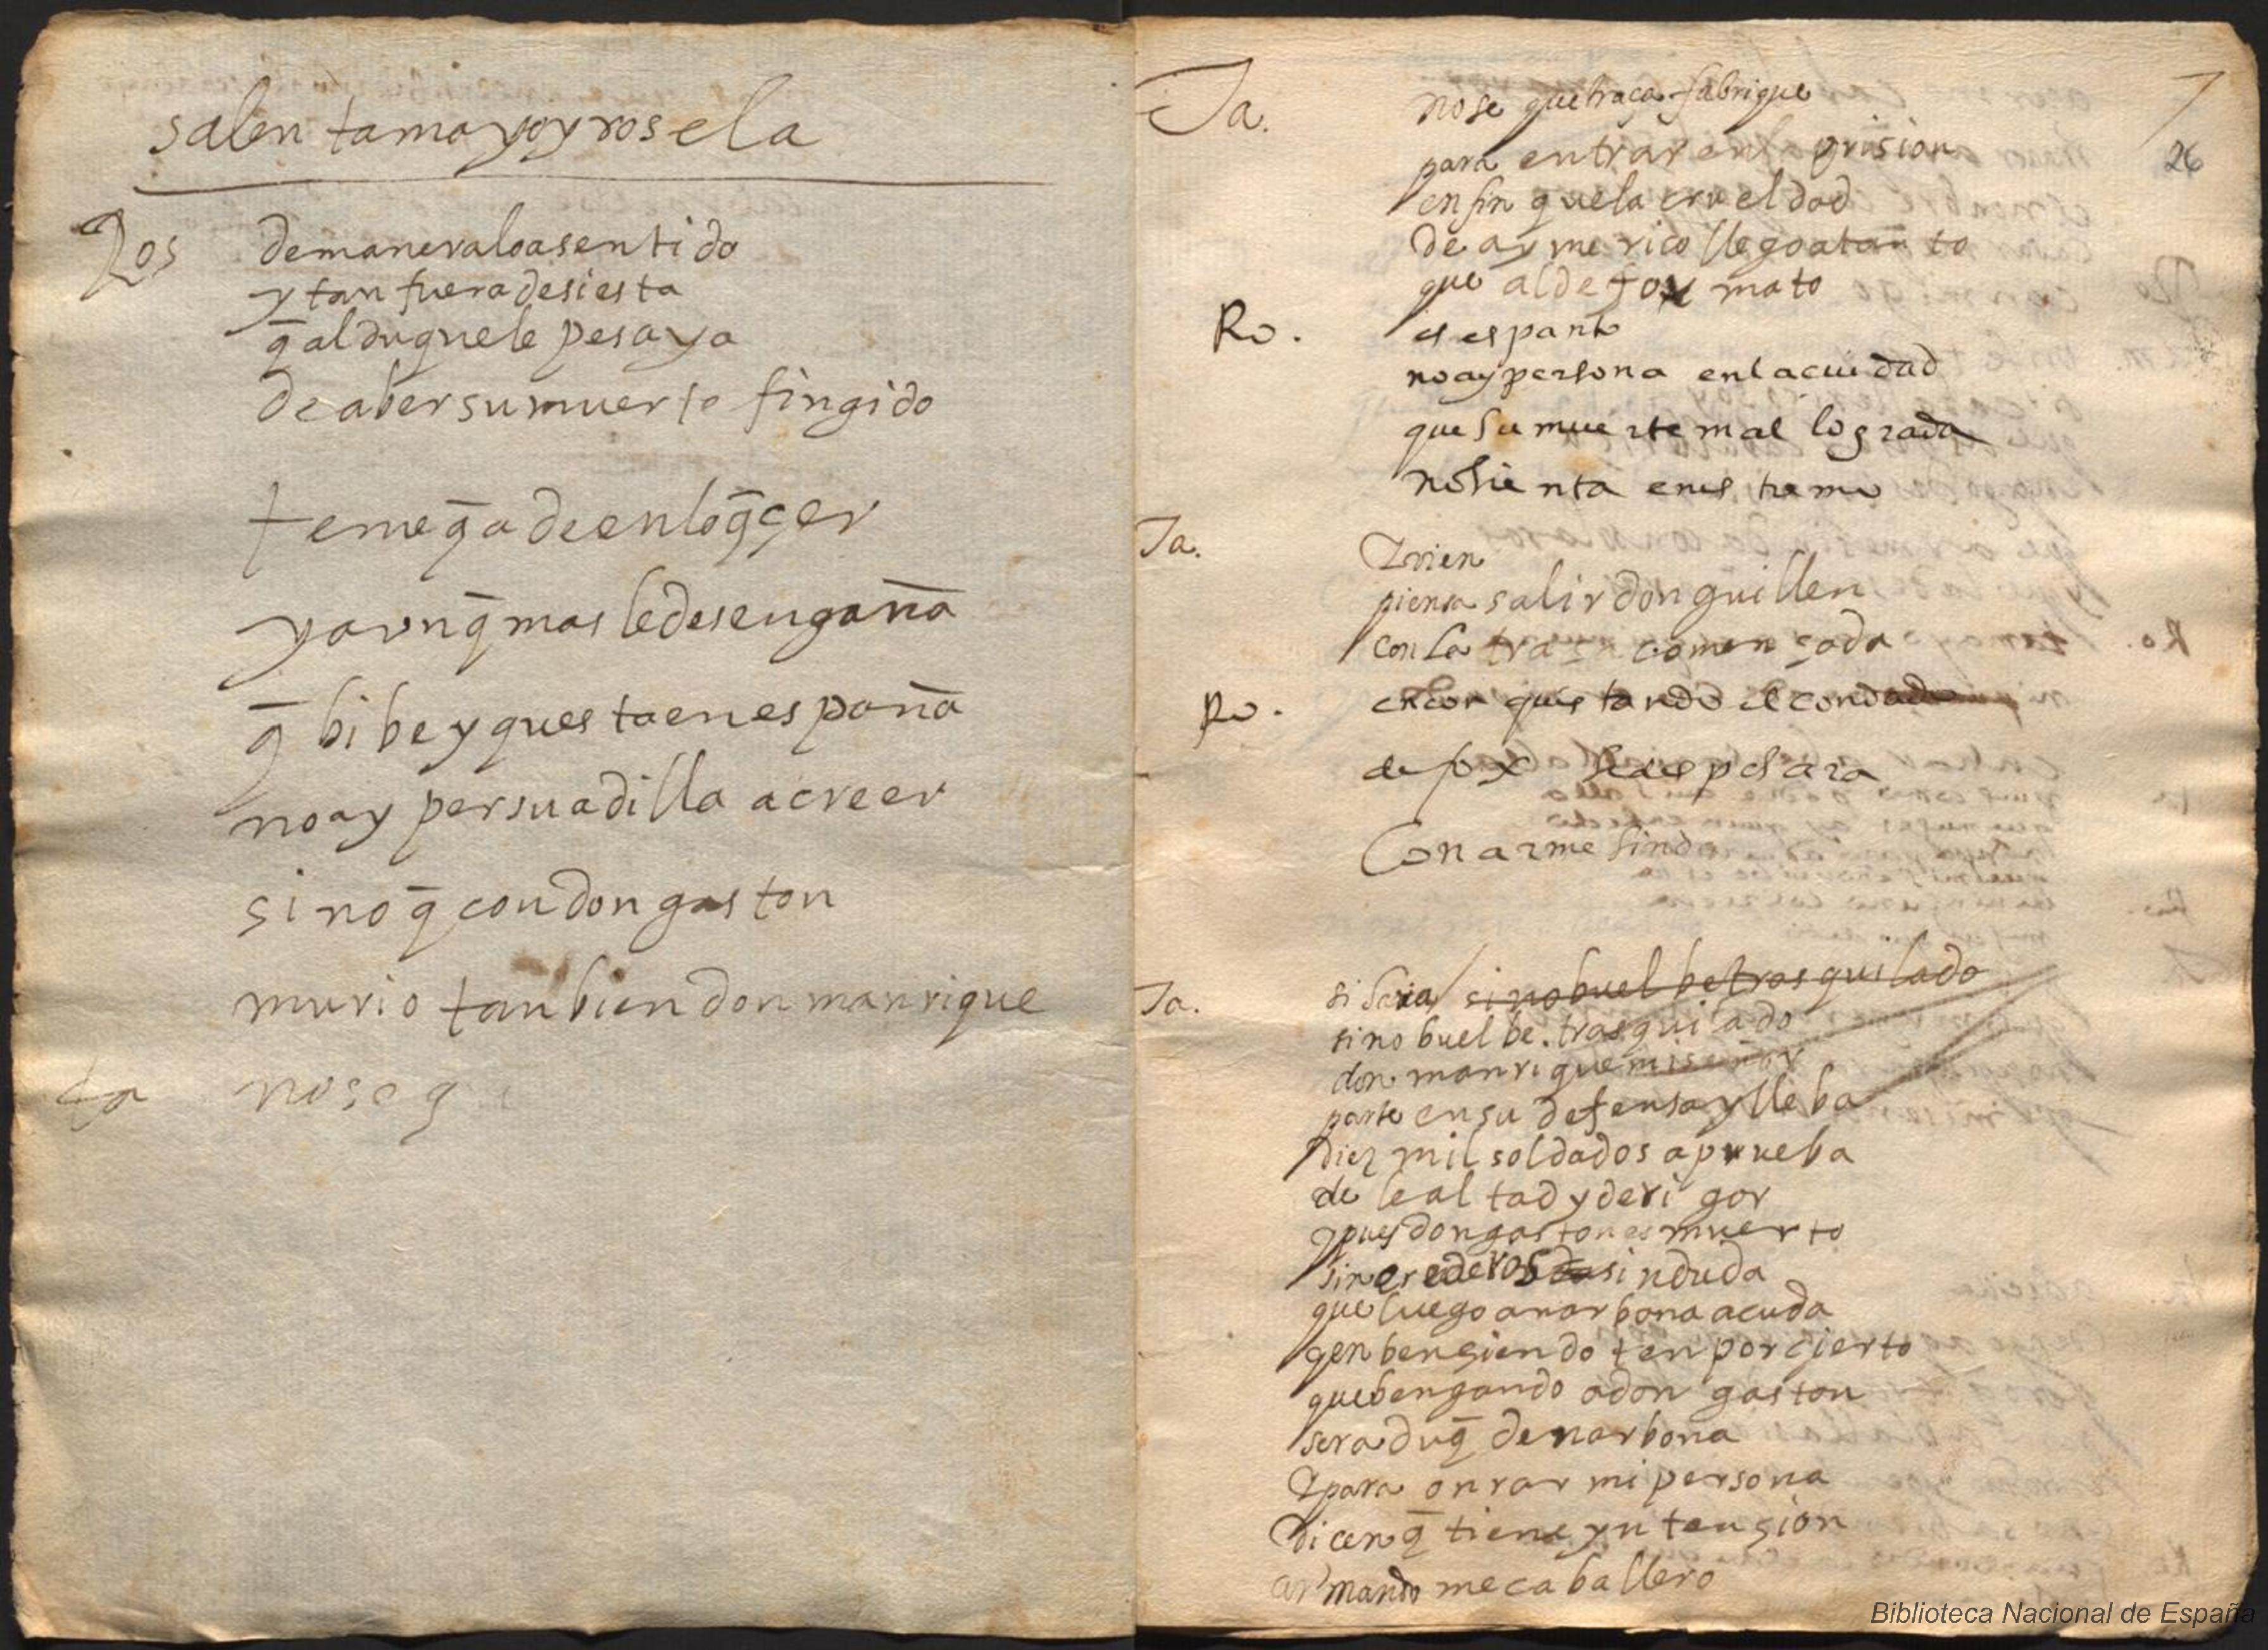 salen tamayo y rosela
Ros de manera lo a sentido
y tan fuera de si esta
q̄ al duque le pesa ya
de aber su muerte fingido
teme q̄ a de enloq̄çer
y a vnq̄ mas le desengaña
q̄ bibe y ques ta en españa
no ay persuadilla a creer
sino q̄ con don gaston
murio tanbien don manrique
ta no se q
7
26
Ta. no se que traça fabrique
para entrar en la prision
en fin que la crueldad
de aymerico llego a tanto
que al de fox mato
Ro. es espanto
no ay persona en la ciudad
que su muerte mal lograda
no sienta en estremo
Ta. Y vien
piensa salir don guillen
con la traça començada
Ro. en conquistando el condado
de fox se desposara
Con armesinda
Ta. si saria si no buelbe trasquilado
si no buelbe. trasquilado
don manrique mi señor
parte en su defensa y lleba
diez mil soldados a prueba
de lealtad y de rigor
y pues don gaston es muerto
sin erederos sin duda
que luego a narbona acuda
q en bençiendo ten por çierto
que bengando a don gaston
sera duq̄ de narbona
Y para onrar mi persona
dicen q̄ tiene yntençion
armando me caballero
Biblioteca Nacional de España